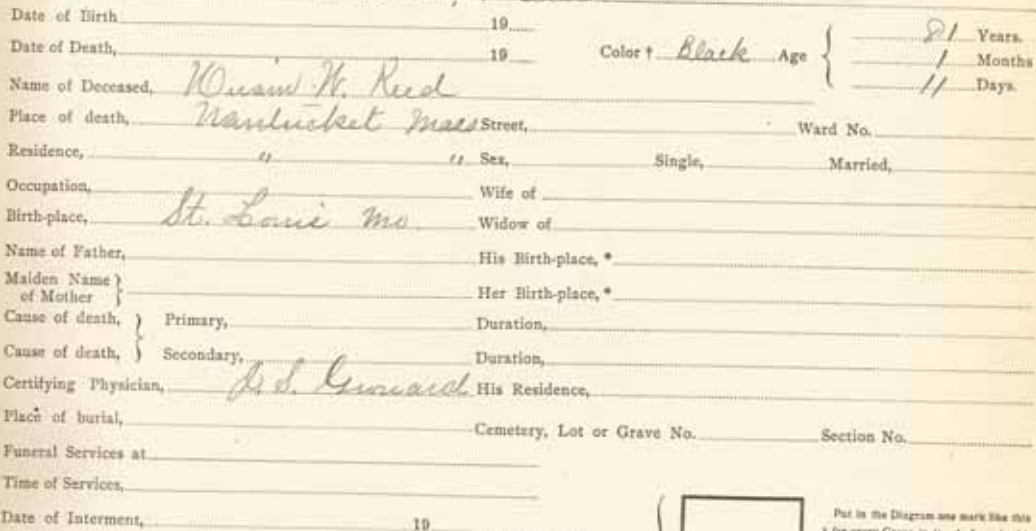 Date of Birth 19
Date of Death, 19 Color † Black Age { 81 Years.
1 Months
11 Days.
Name of Deceased, Hiram W. Reed
Place of death, Nantucket Mass Street, Ward No.
Residence, " " Sex, Single, Married,
Occupation, Wife of
Birth-place, St. Louis Mo. Widow of
Name of Father, His Birth-place, *
Maiden Name of Mother } Her Birth-place, *
Cause of death, } Primary, Duration,
Cause of death, } Secondary, Duration,
Certifying Physician, J. S. Grouard His Residence,
Place of burial, Cemetery, Lot or Grave No. Section No.
Funeral Services at
Time of Services,
Date of Interment, 19
Put in the Diagram one mark like this